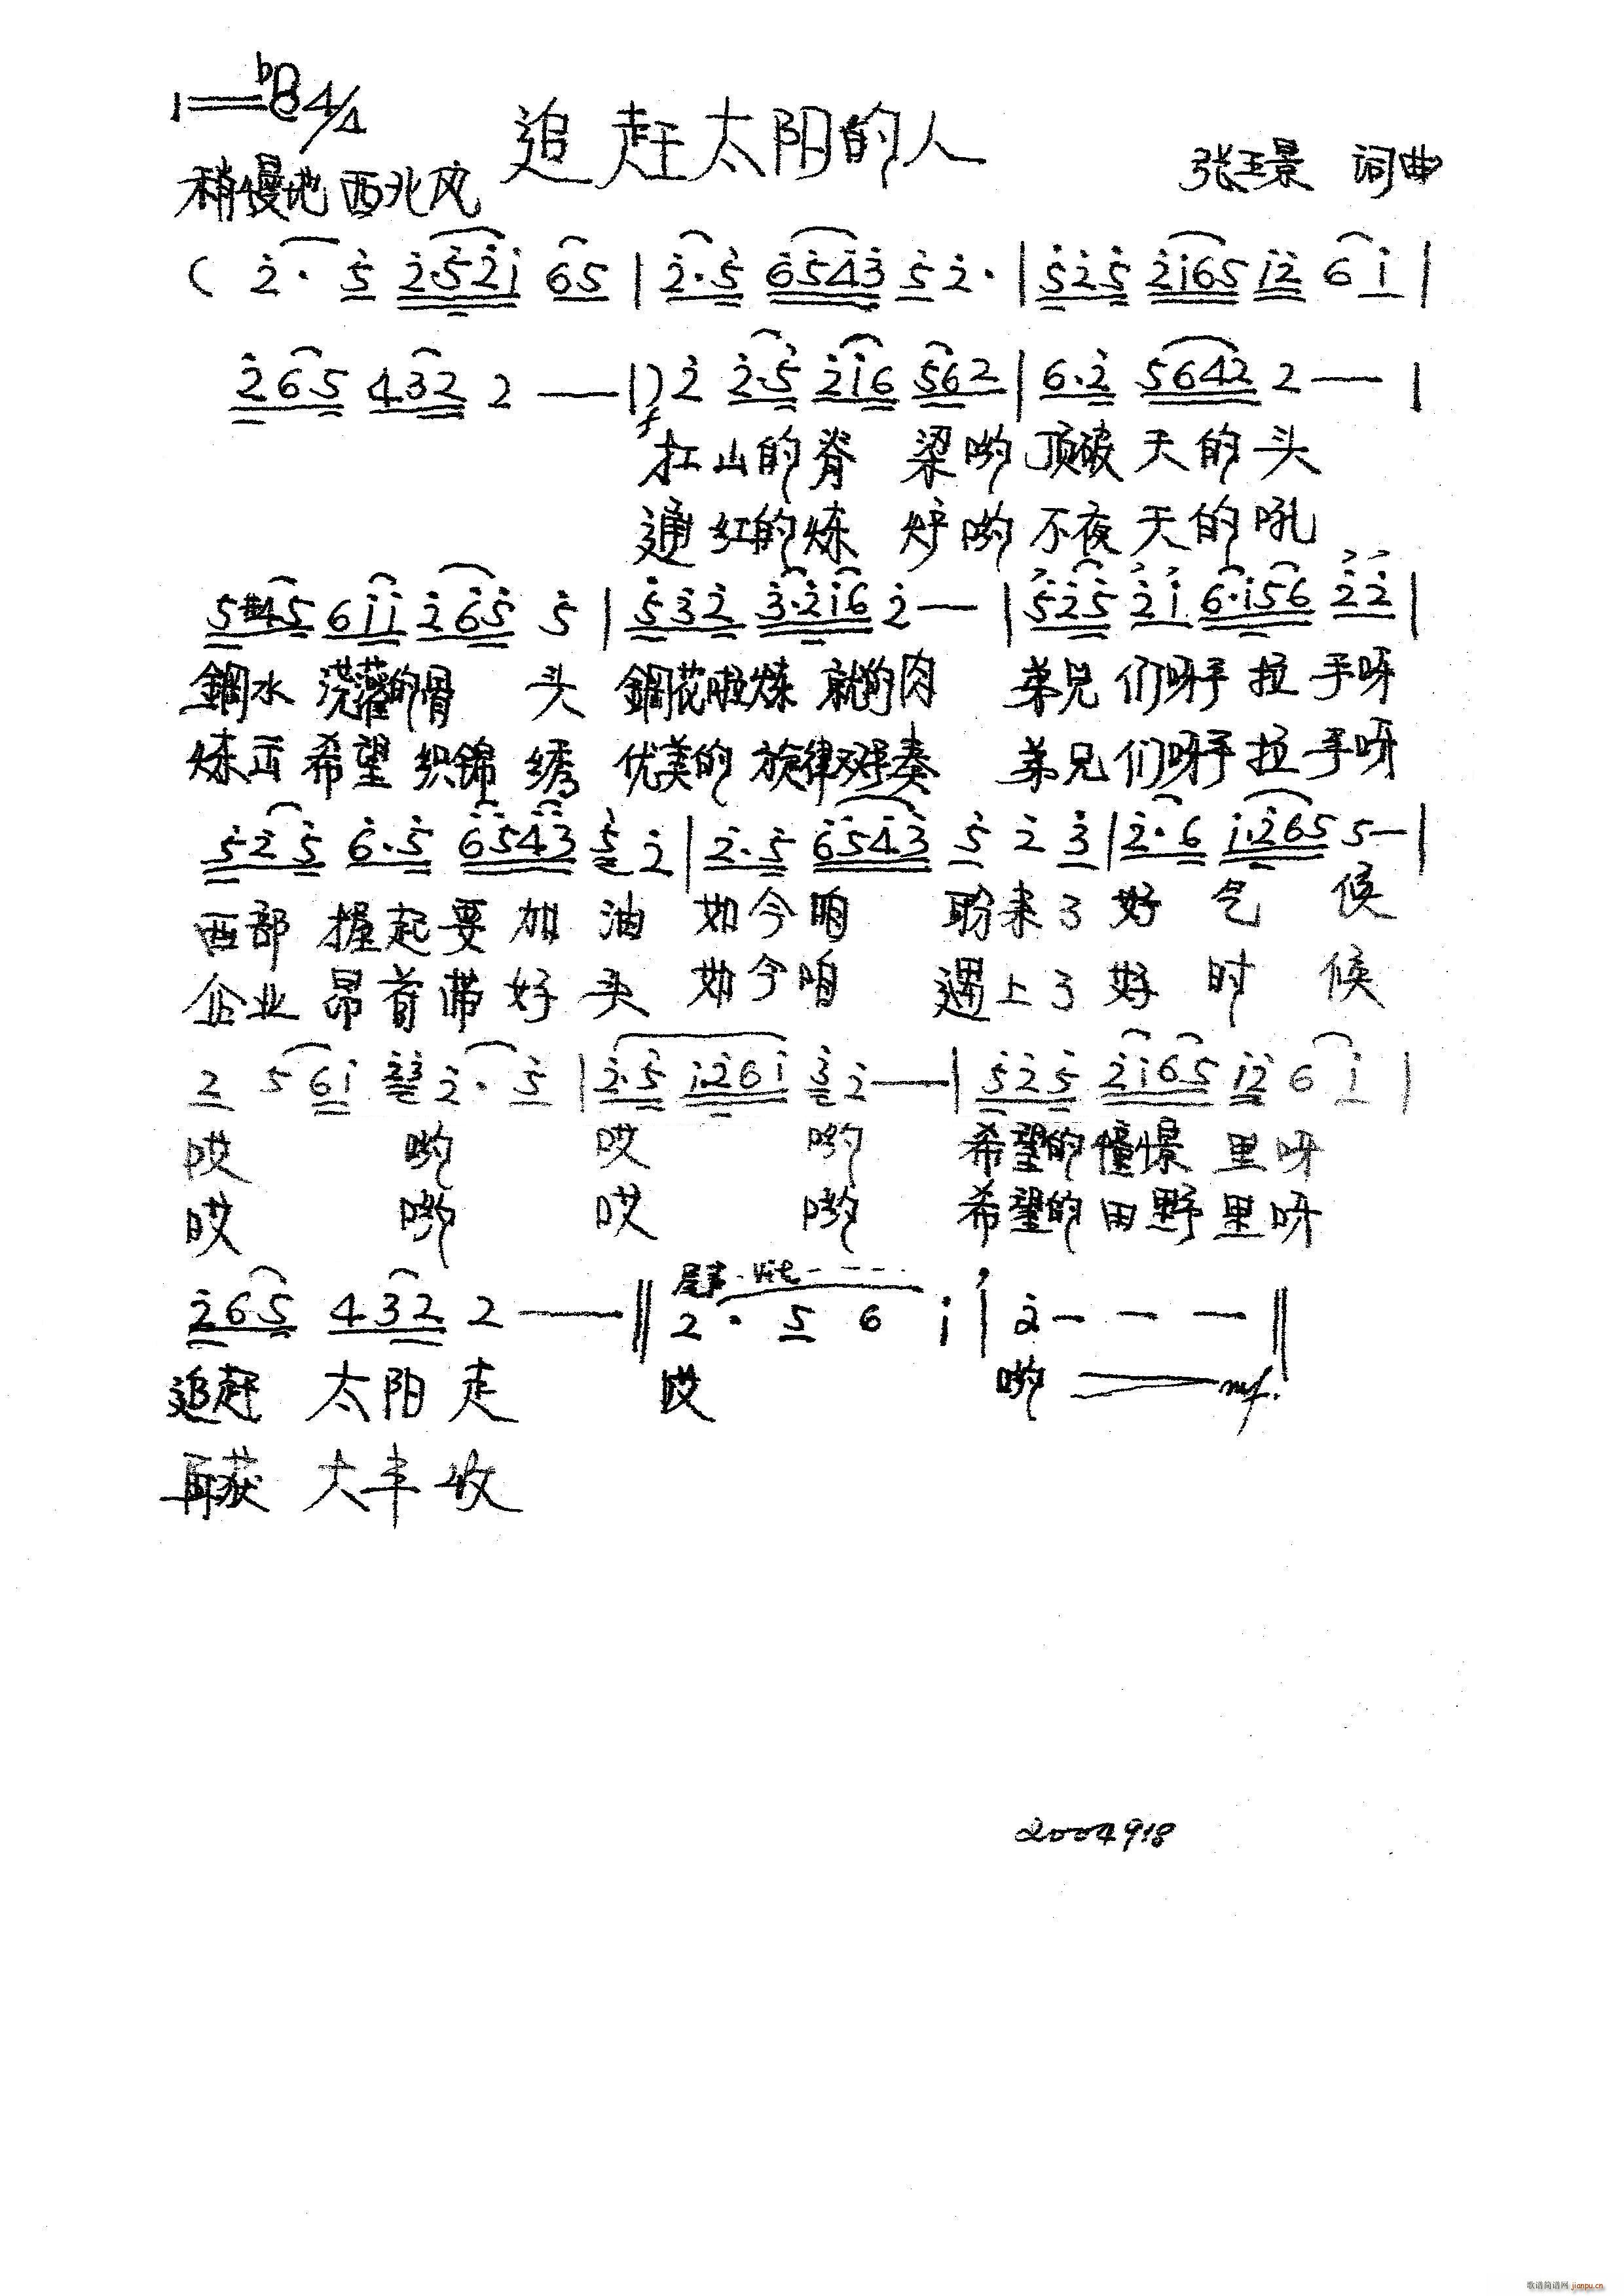 1=bB4/4
追赶太阳的人
张玉景 词曲
稍慢地 西北风
( 2· 5 2·521 65 | 2·5 6543 5 2· | 525 2165 12 6 1 |
265 432 2 — |) 2 2·5 216 562 | 6·2 5642 2 — |
f
扛山的脊 梁哟 顶破天的头
通红的炼 炉哟 不夜天的吼
5#45 611 265 5 | 532 3·216 2 — | 525 21 6·156 22 |
鋼水 浇灌的骨 头 鋼花啦炼 就的肉 弟兄们呀手拉手呀
炼 希望 织錦 绣 优美的 旋律 奏 弟兄们呀手拉手呀
525 6·5 6543 5 2 | 2·5 6543 5 2 3 | 2·6 1·265 5— |
西部 握起要加油 如今咱 盼来了好气候
企业 昂首带好头 如今咱 遇上了好时候
2 5 61 23 2· 5 | 2·5 1·261 3 2 — | 525 2165 12 6 1 |
哎 哟 哎 哟 希望的憧憬里呀
哎 哟 哎 哟 希望的田野里呀
尾声 rit----
265 432 2 — || 2· 5 6 1 | 2 — — — ||
追赶 太阳走 哎 哟 mf.
再获 大丰收
2004918
歌谱简谱网 jianpu.cn